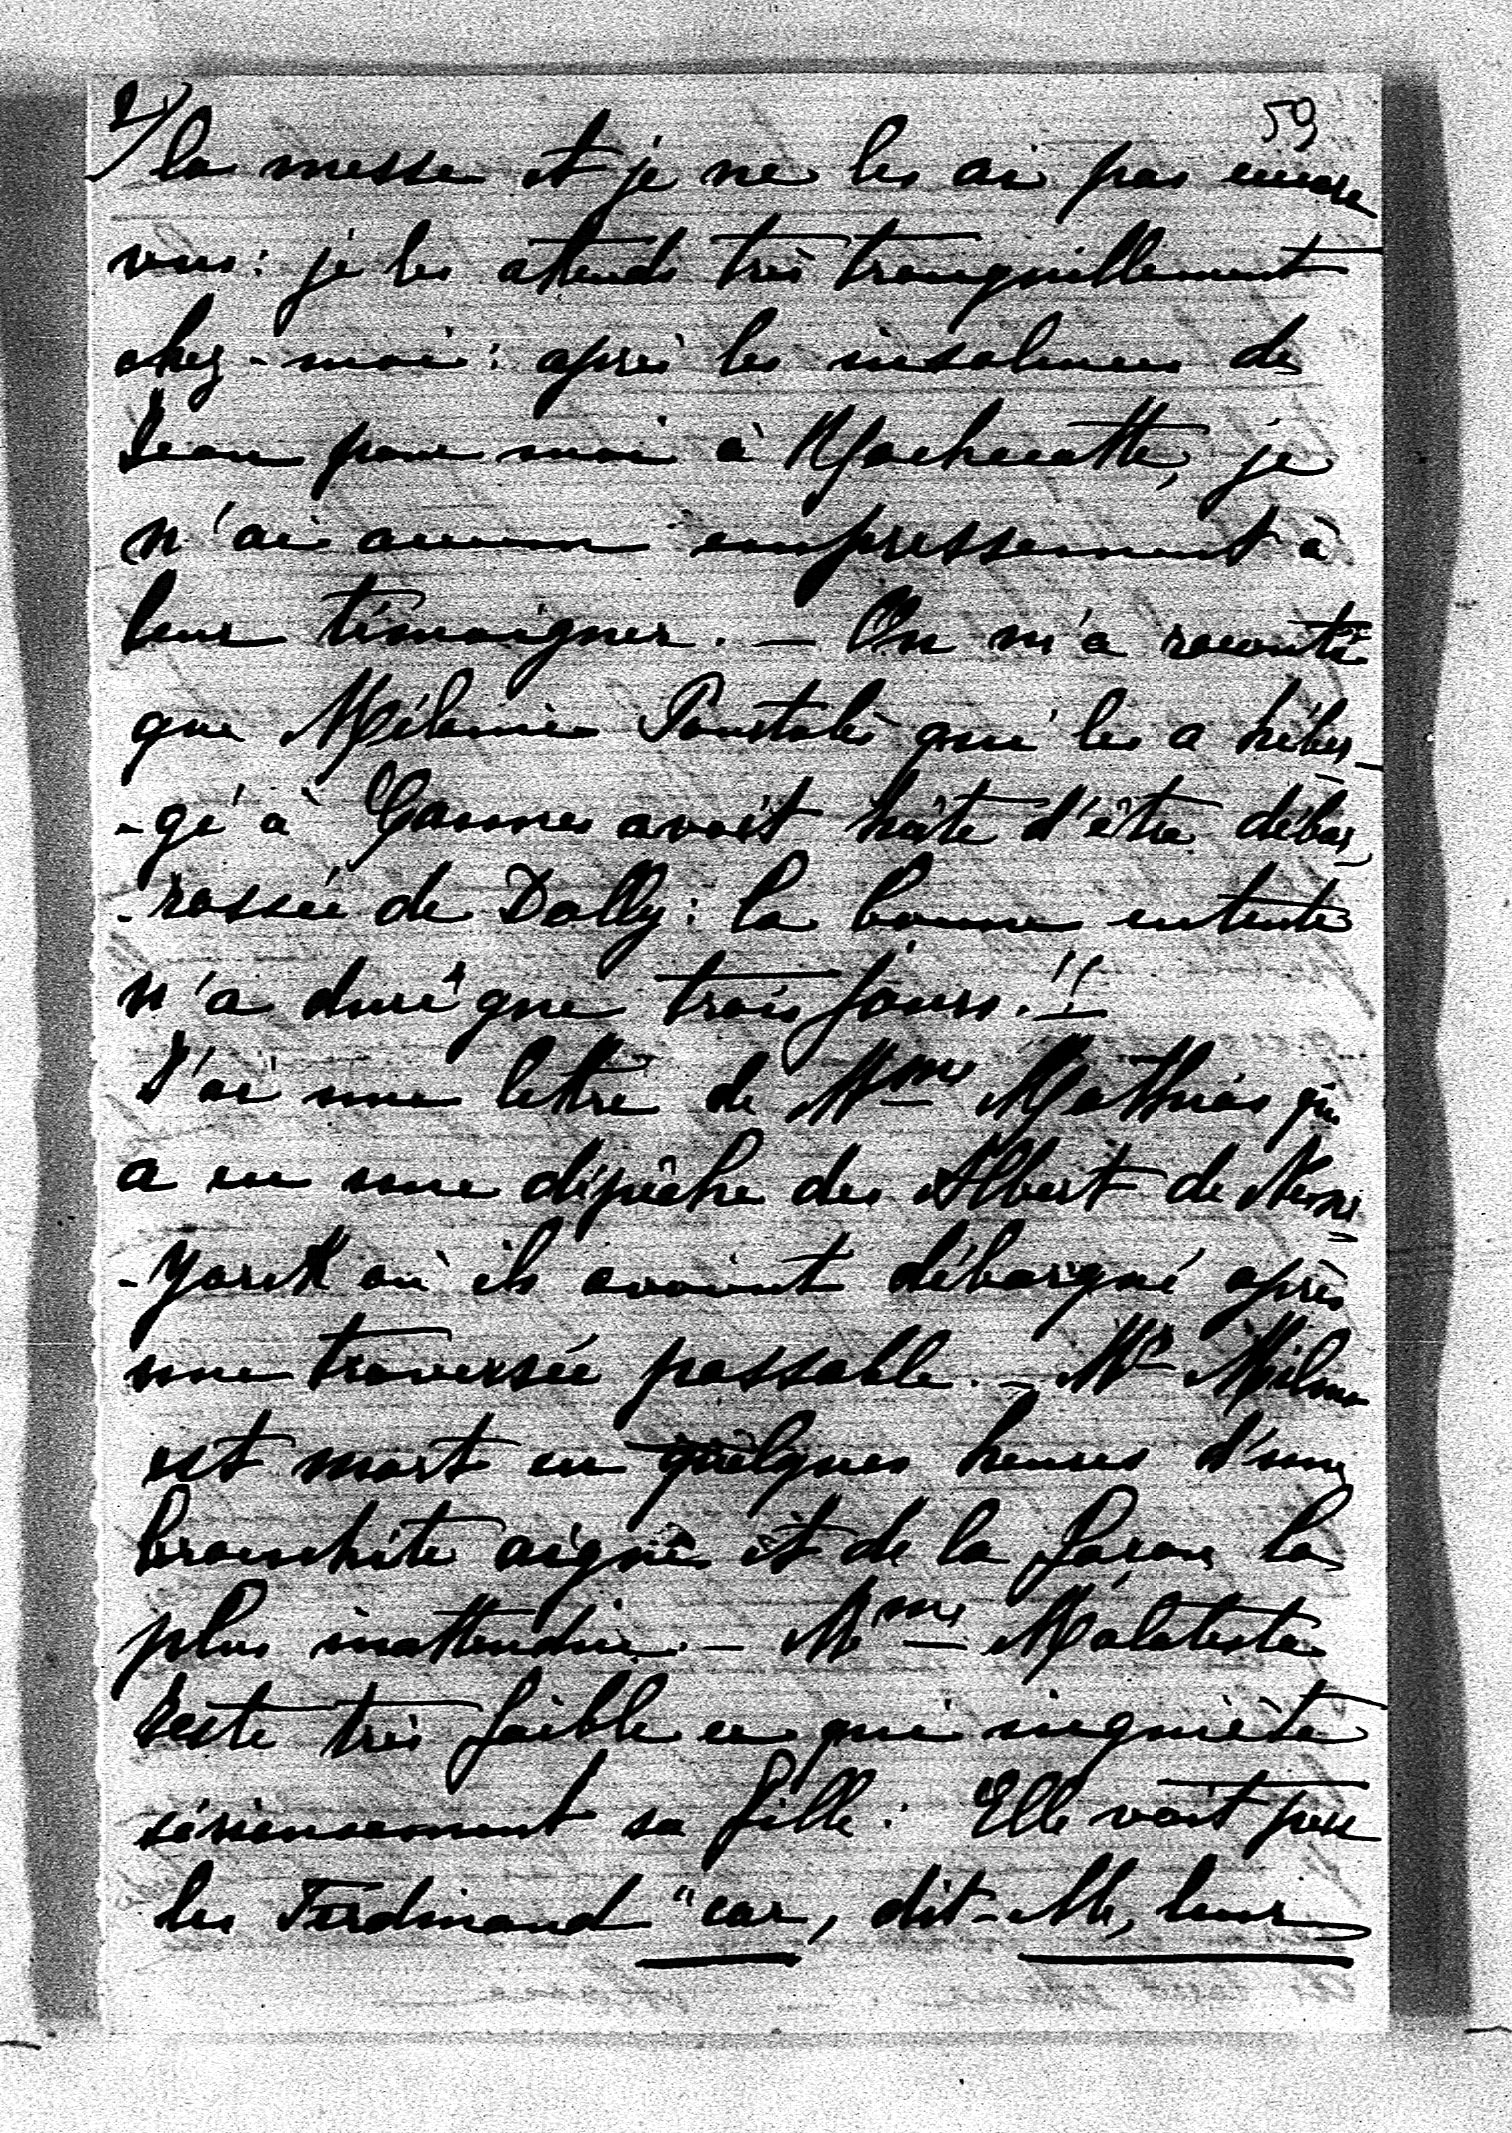 2/ 59
la messe et je ne les ai pas encore
vus : je les attends très tranquillement
chez-moi : après les insolences de
Jean pour moi à je
n'ai aucun empressement à
leur témoigner. — On m'a raconté
que Mélanie qui les a héber-
-gé à Cannes avait hâte d'être débar-
-rassée de Dolly : la bonne entente
n'a duré que trois jours.!!
J'ai une lettre de Mme Mathias qui
a eu une dépêche des Albert de New-
-Yorck où ils avaient débarqué après
une traversée passable. — Mr Milne
est mort en quelques heures d'une
bronchite aigue et de la façon la
plus inattendue. — Mme Malatesta
reste très faible ce qui inquiète
sérieusement sa fille : Elle voit peu
les Ferdinand "car, dit-elle, leur